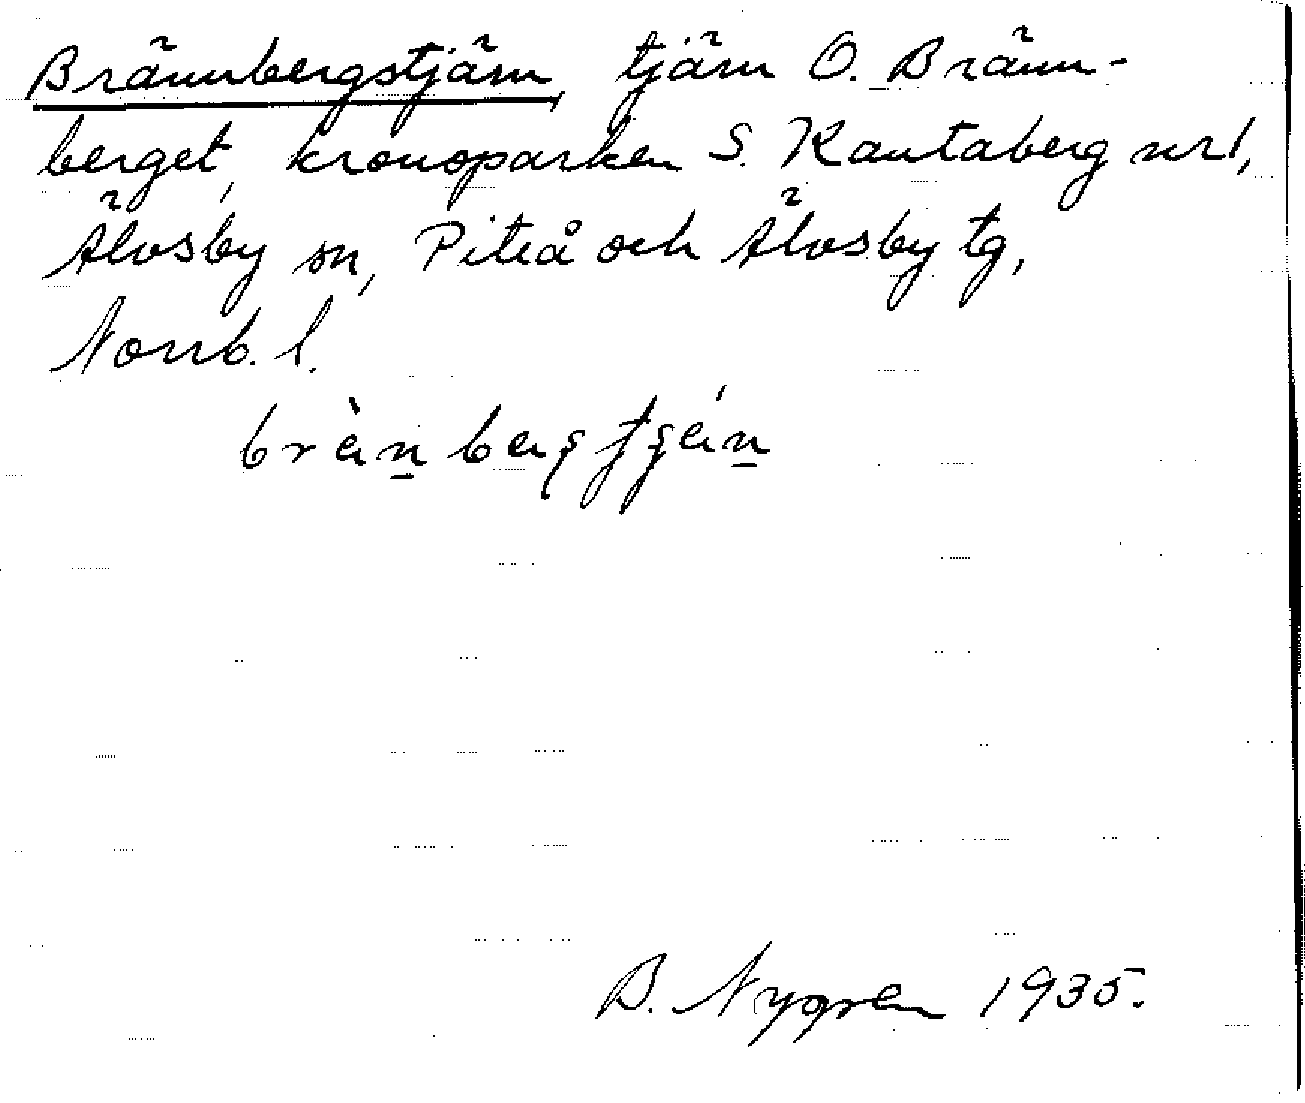 Brännbergstjärn, tjärn O. Bränn-
berget, kronoparken S. Kantaberg nr 1,
Älvsby sn, Piteå och Älvsby tg,
Norrb. l.
B. Nygren 1935.